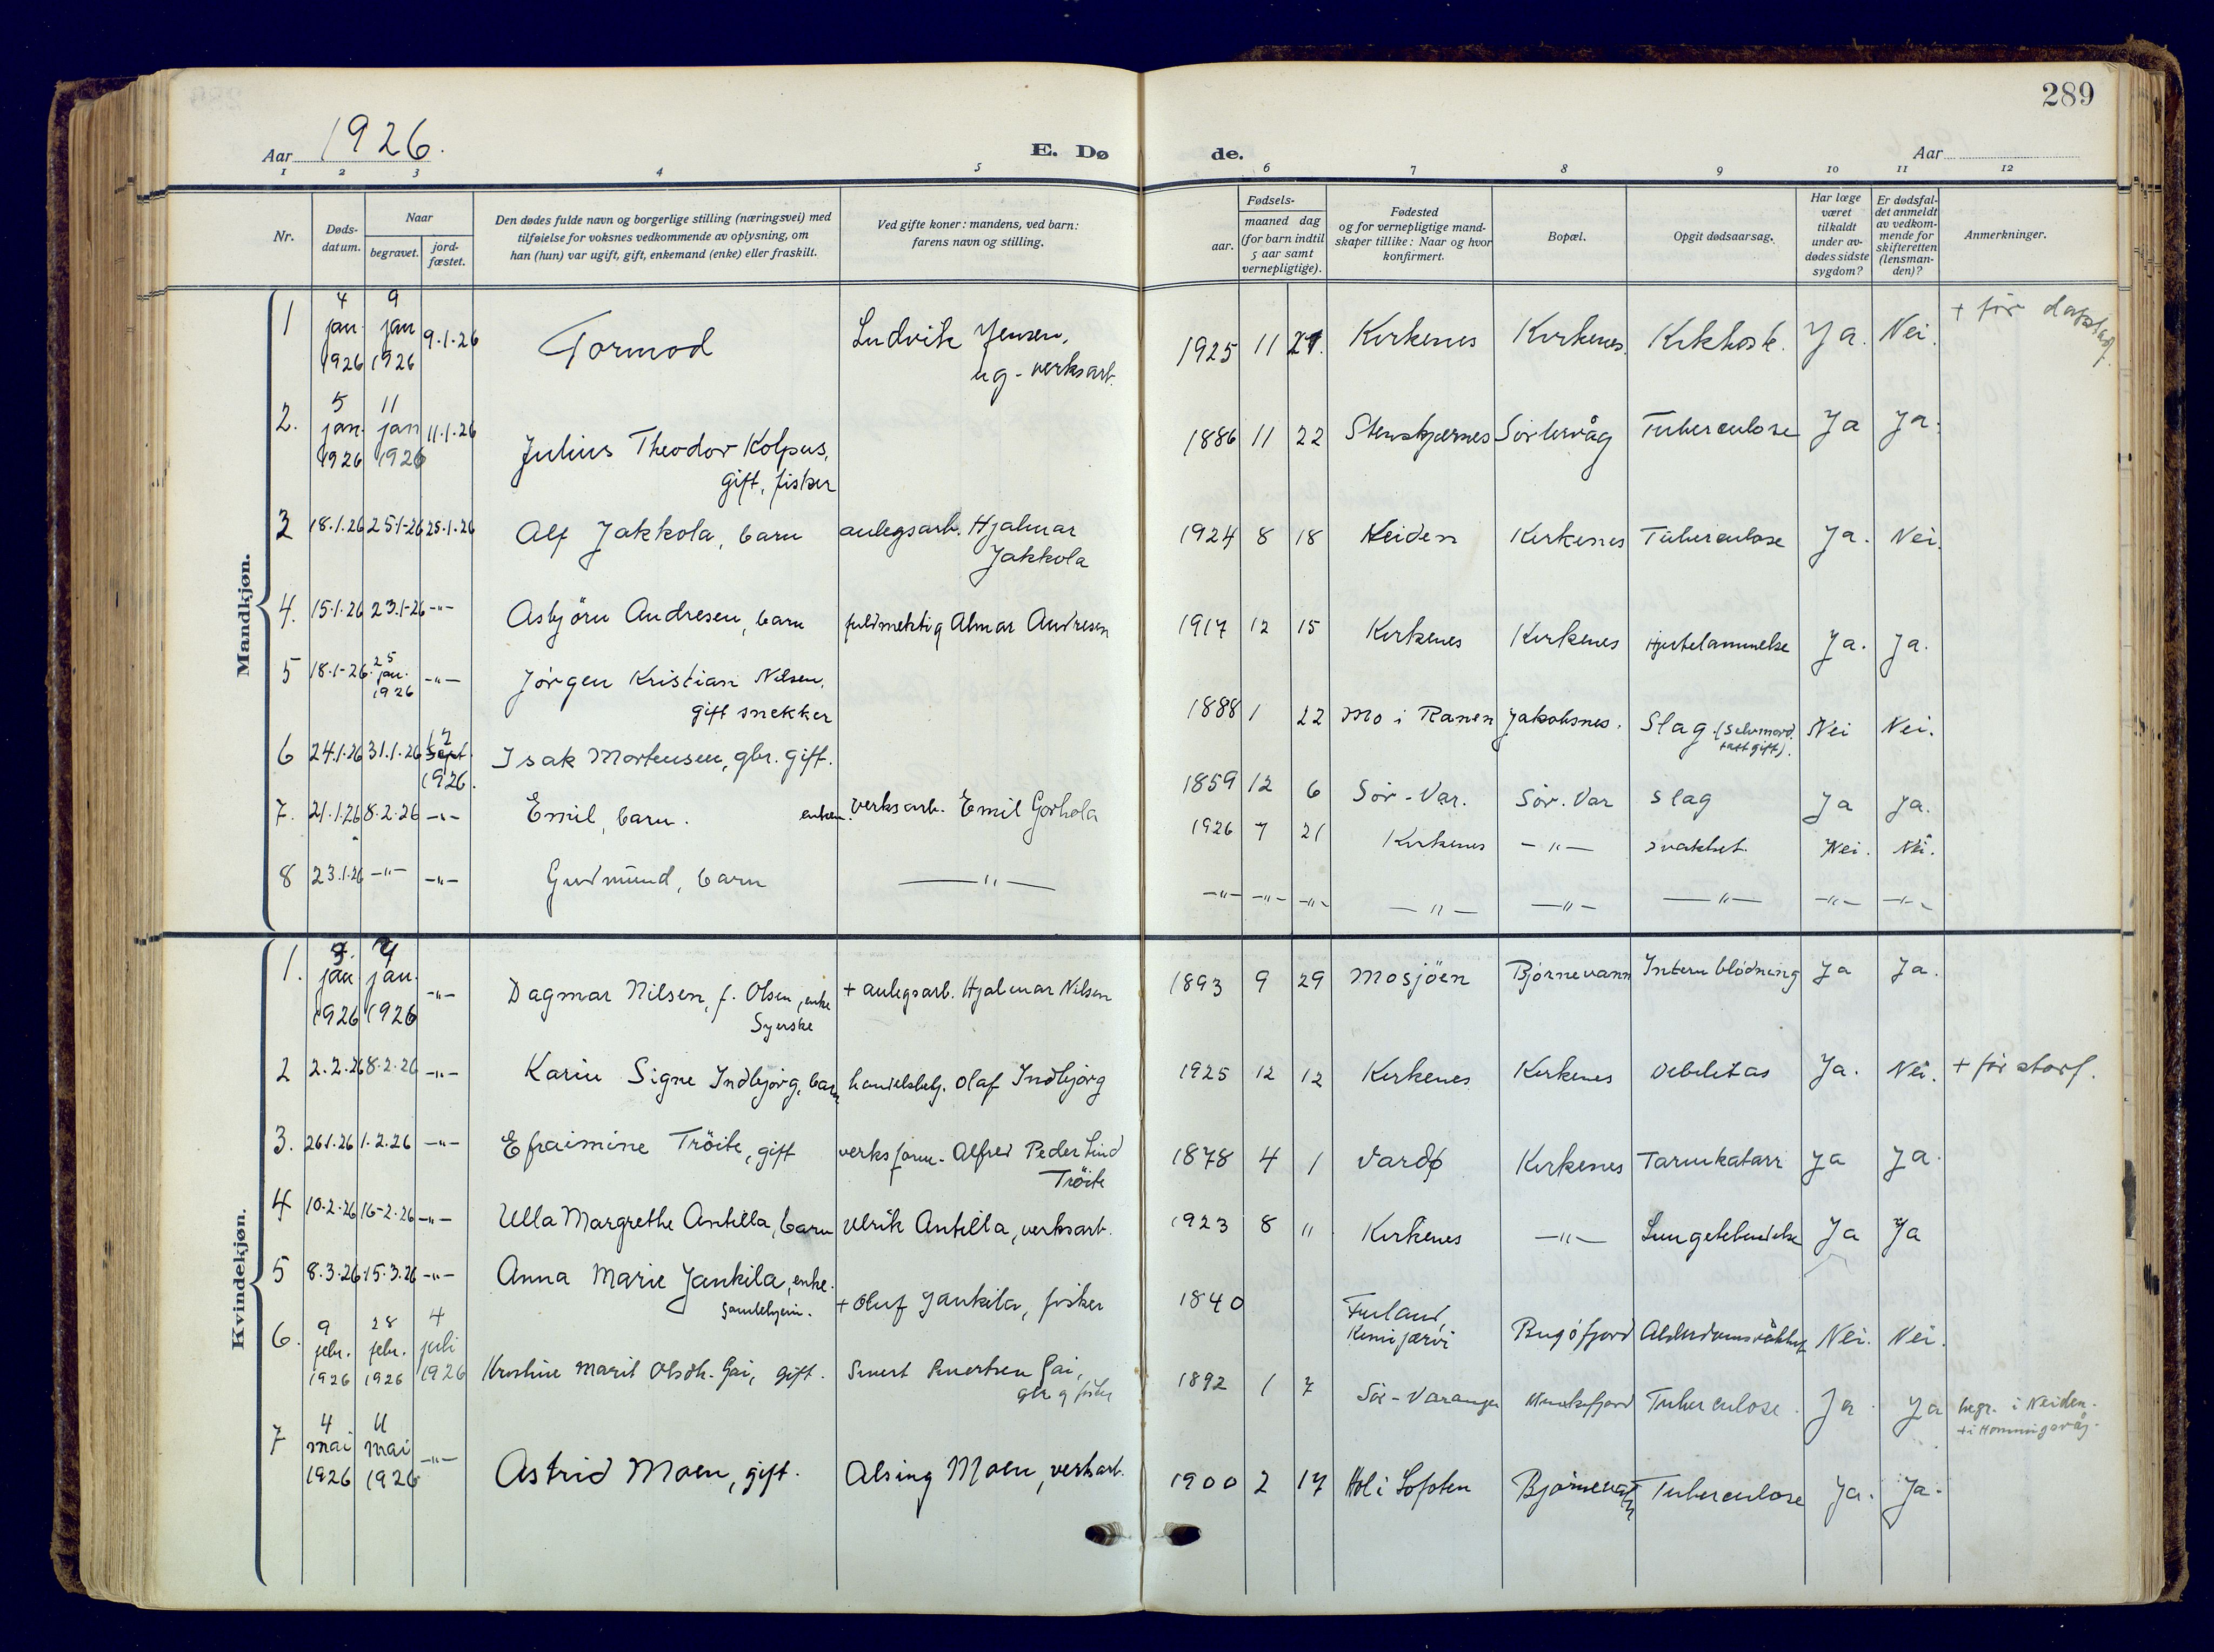 289
Aar 1926.
E. Dø
de.
Aar
1 2 3 4 5 6 7 8 9 10 11 12
Nr.
Døds-
datum.
Naar
begravet.
jord-
fæstet.
Den dødes fulde navn og borgerlige stilling (næringsvei) med
tilføielse for voksnes vedkommende av oplysning, om
han (hun) var ugift, gift, enkemand (enke) eller fraskilt.
Ved gifte koner: mandens, ved barn:
farens navn og stilling.
Fødsels-
aar.
maaned dag
(for barn indtil
5 aar samt
vernepligtige).
Fødested
og for vernepligtige mand-
skaper tillike: Naar og hvor
konfirmert.
Bopæl.
Opgit dødsaarsag.
Har læge
været
tilkaldt
under av-
dødes sidste
sygdom?
Er dødsfal-
det anmeldt
av vedkom-
mende for
skifteretten
(lensman-
den)?
Anmerkninger.
Mandkjøn.
1 4 jan. 1926 9 jan 1926 9.1.26 Tormod Ludvik Jensen, ug. verksarb. 1925 11 21. Kirkenes Kirkenes. Kikhoste. Ja. Nei. + før daabs
2. 5 jan. 1926 11 jan 1926 11.1.26 Julius Theodor Kolpus, gift, fisker 1886 11 22 Stenskjærnes Sør Lervåg Tuberculose Ja Ja.
3 18.1.26 25.1-26 25.1.26 Alf Jakkola, barn anlegsarb. Hjalmar Jakkola 1924 8 18 Neiden Kirkenes Tuberculose Ja. Nei.
4. 15.1.26 23.1-26 -"- Asbjörn Andresen, barn fuldmektig Almar Andresen 1917 12 15 Kirkenes Kirkenes Hjertelammelse Ja. Ja.
5 18.1-26. 25 jan. 1926 -"- Jørgen Kristian Nilsen, gift snekker 1888 1 22 Mo i Ranen Jakobsnes. Slag (Selvmord. tatt gift). Nei Nei.
6 24.1.26 31.1.26 12 Sept. 1926. Isak Mortensen, gbr. gift. 1859 12 6 Sør-Var. Sør.Var Slag Ja Ja.
7. 21.1.26 8.2.26 -"- Emil, barn. verksarb. Emil Gorhola 1926 7 21 Kirkenes -"- svakhet. Nei. Nei.
8 23.1.26 -"- -"- Gudmund, barn -"- -"- -"- -"- -"- -"- -"- -"- -"-
Kvindekjøn.
1. jan 1926 jan. 1926 -"- Dagmar Nilsen, f. Olsen, enke Syerske + anlegsarb. Hjalmar Nilsen 1893 9 29 Mosjöen Bjørnevann Intern blödning Ja Ja.
2 2.2.26 8.2.26 -"- Karin Signe Indbjorg, barn handelsbetj. Olaf Indbjörg 1925 12 12 Kirkenes Kirkenes Debilitas Ja. Nei. + før storf.
3. 26.1.26 1.2.26 -"- Efraimine Tröite, gift verksform. Alfred Peder Lind Tröite 1878 4 1 Vardø Kirkenes Tarmkatarr Ja Ja.
4 10.2.26 16-2.26 -"- Ulla Margrethe Antilla, barn Ulrik Antilla, verksarb. 1923 8 " Kirkenes -"- Lungebetendelse Ja Ja
5 8.3.26 15.3.26 -"- Anna Marie Jankila, enke. Gamlehjem. + Oluf Jankila, fisker 1840 Finland, Kemijærvi Bugøfjord Alderdomssvakhet Nei. Nei.
6. 9 febr. 1926 28 febr. 1926 4 juli 1926 Kirstine Marit Olsdtr. Gai, gift. Gai, gbr og fisker 1892 1 7 Sør-Varanger Munkefjord Tuberculose. Ja Ja begr. i Neiden. + i Honningsvåg.
7 4 mai 1926 11 mai 1926 -"- Astrid Moen, gift. Alsing Moen, verksarb. 1900 2 17 Hol i Lofoten Bjørnevatn Tuberculose Ja. Ja.